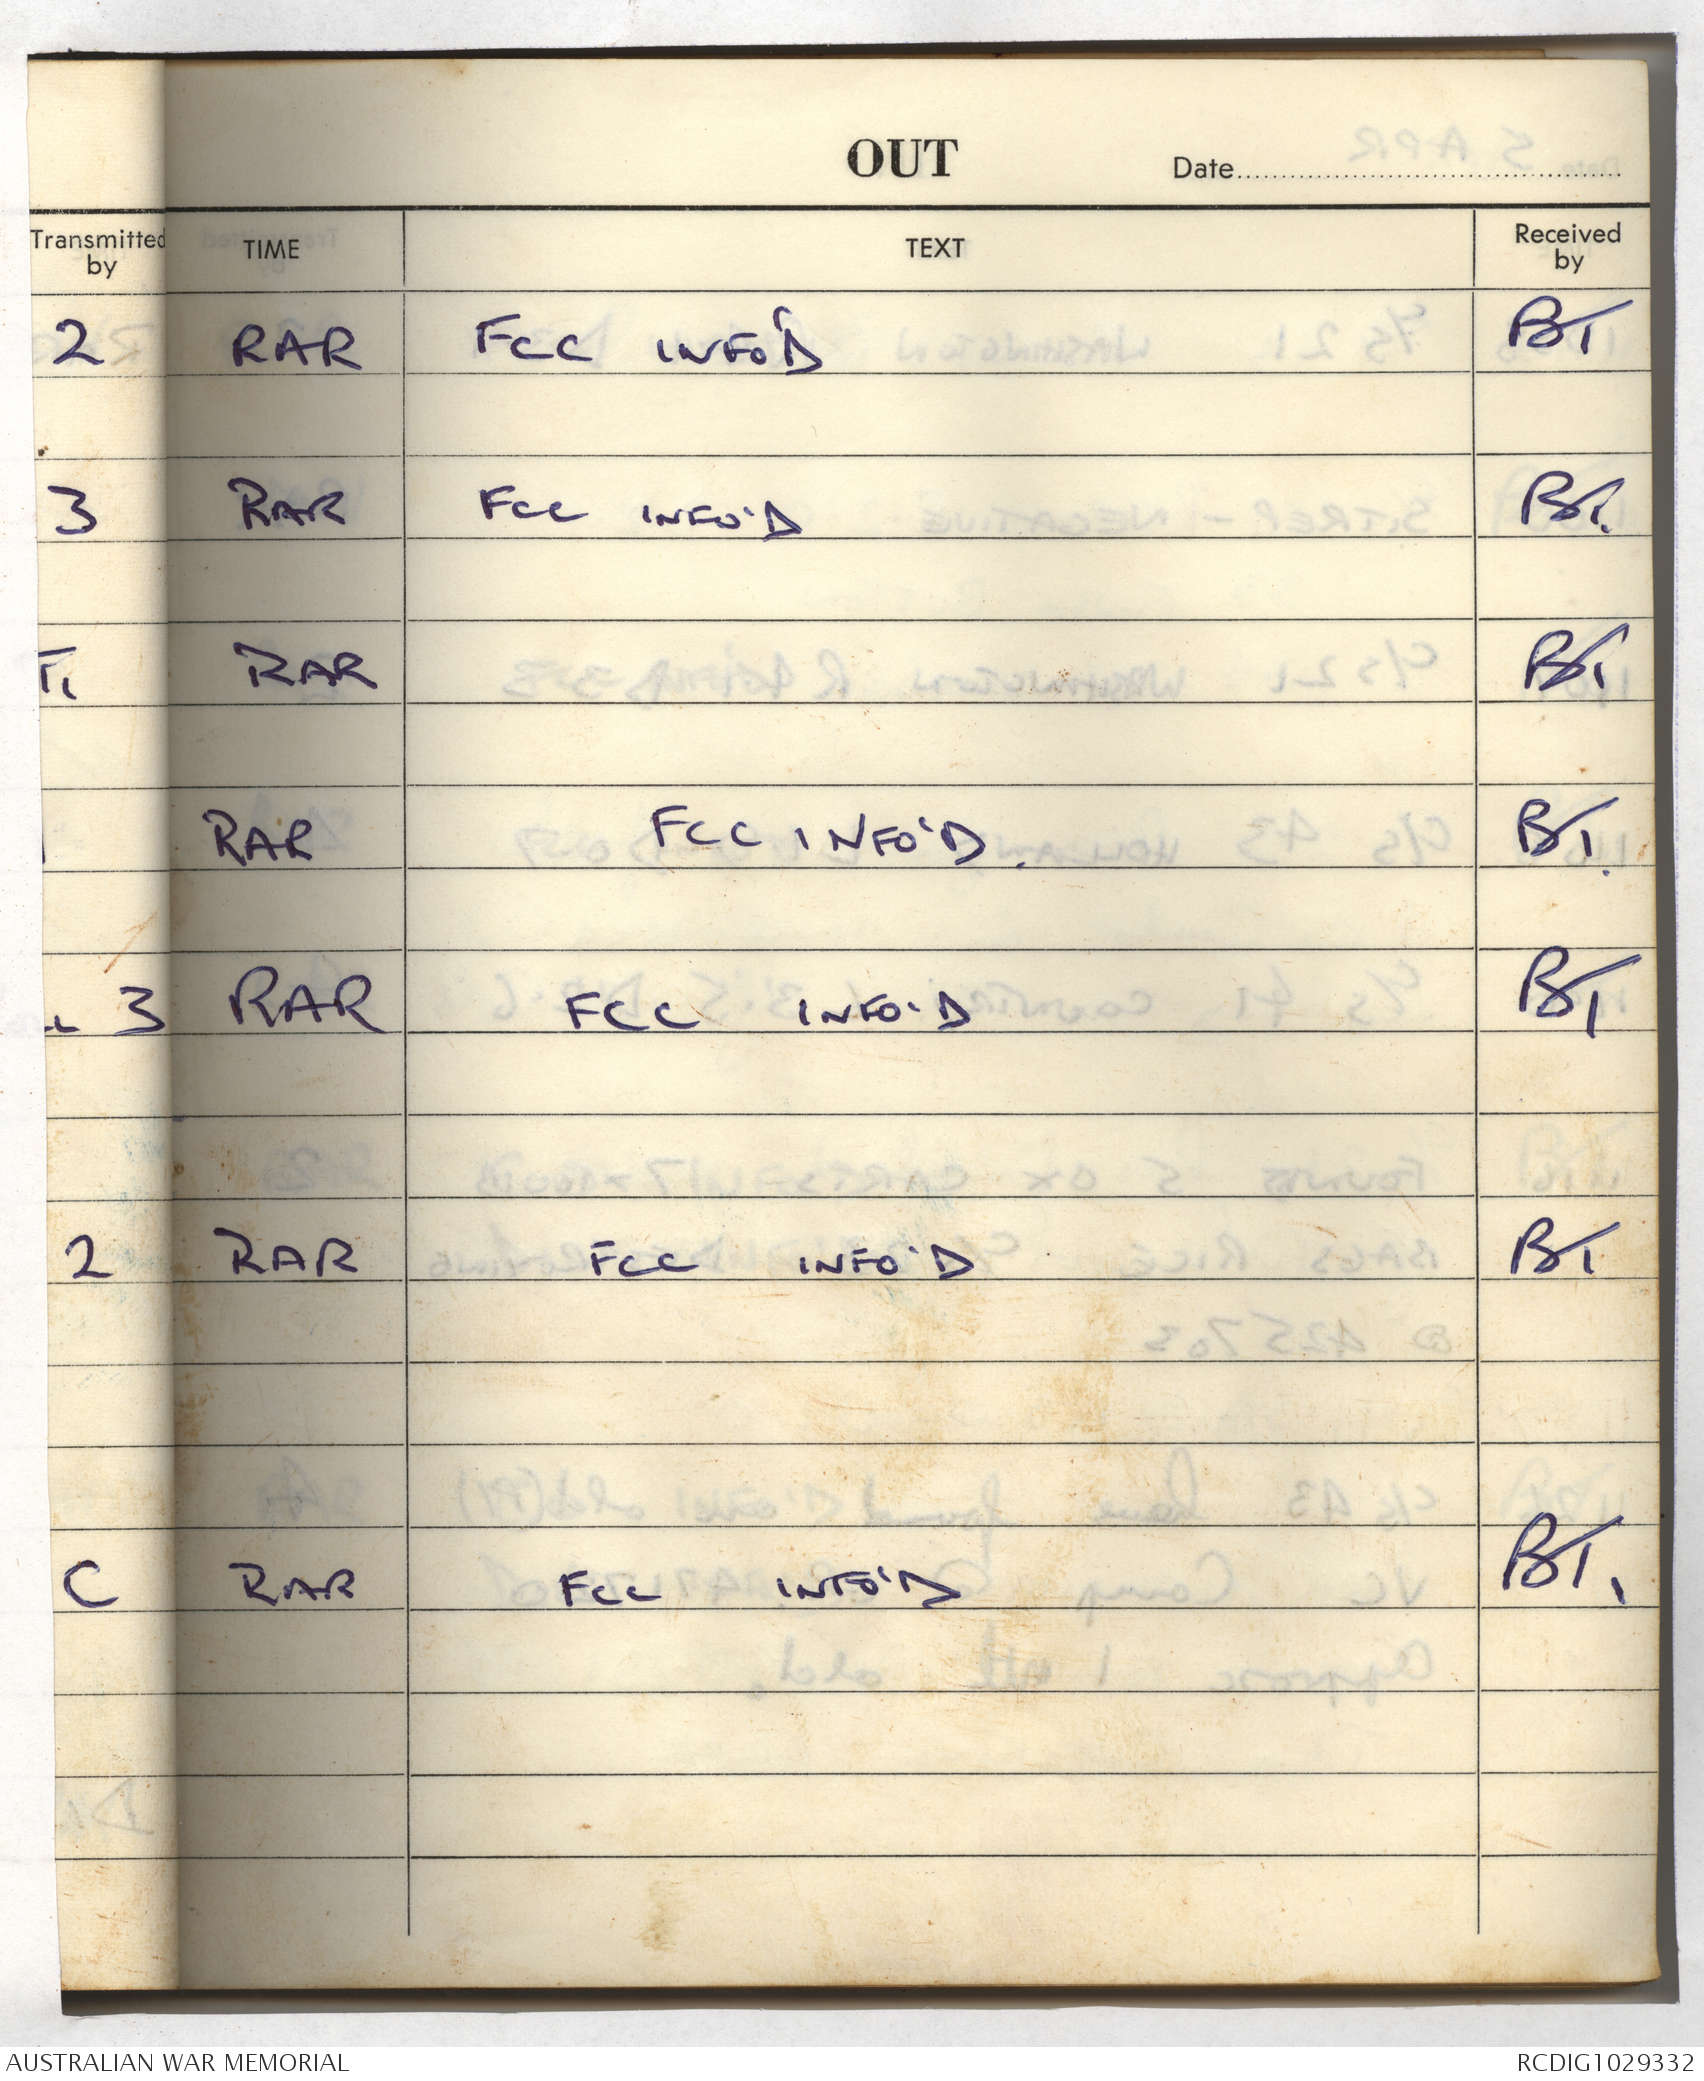 OUT
Date
Transmitted by TIME TEXT Received by
2 RAR FCC INFO'D BT
3 RAR FCC INFO'D BT.
RAR BT
RAR FCC INFO'D. BT.
3 RAR FCC INFO'D BT
2 RAR FCC INFO'D BT
C RAR FCC INFO'D BT
AUSTRALIAN WAR MEMORIAL RCDIG1029332